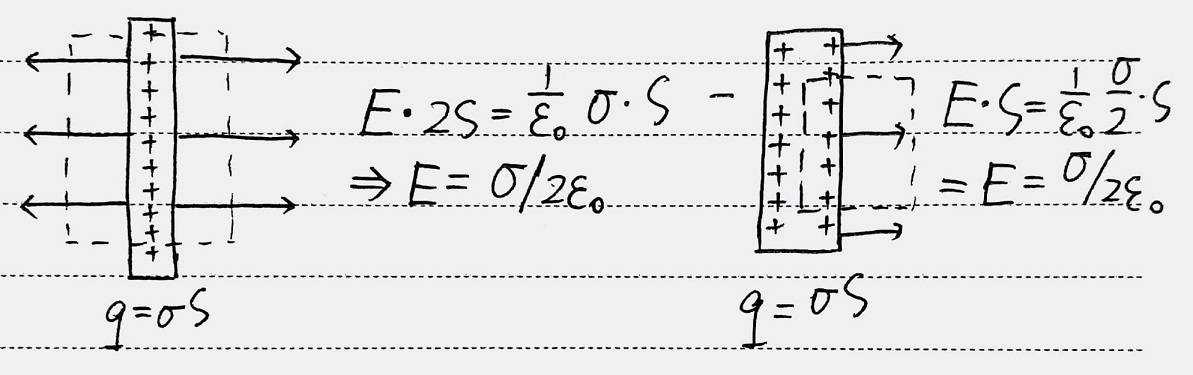 E·2S = 1/ε₀ σ·S –
⇒ E = σ/2ε₀
q=σS
E·S = 1/ε₀ σ/2·S
= E = σ/2ε₀
q = σS